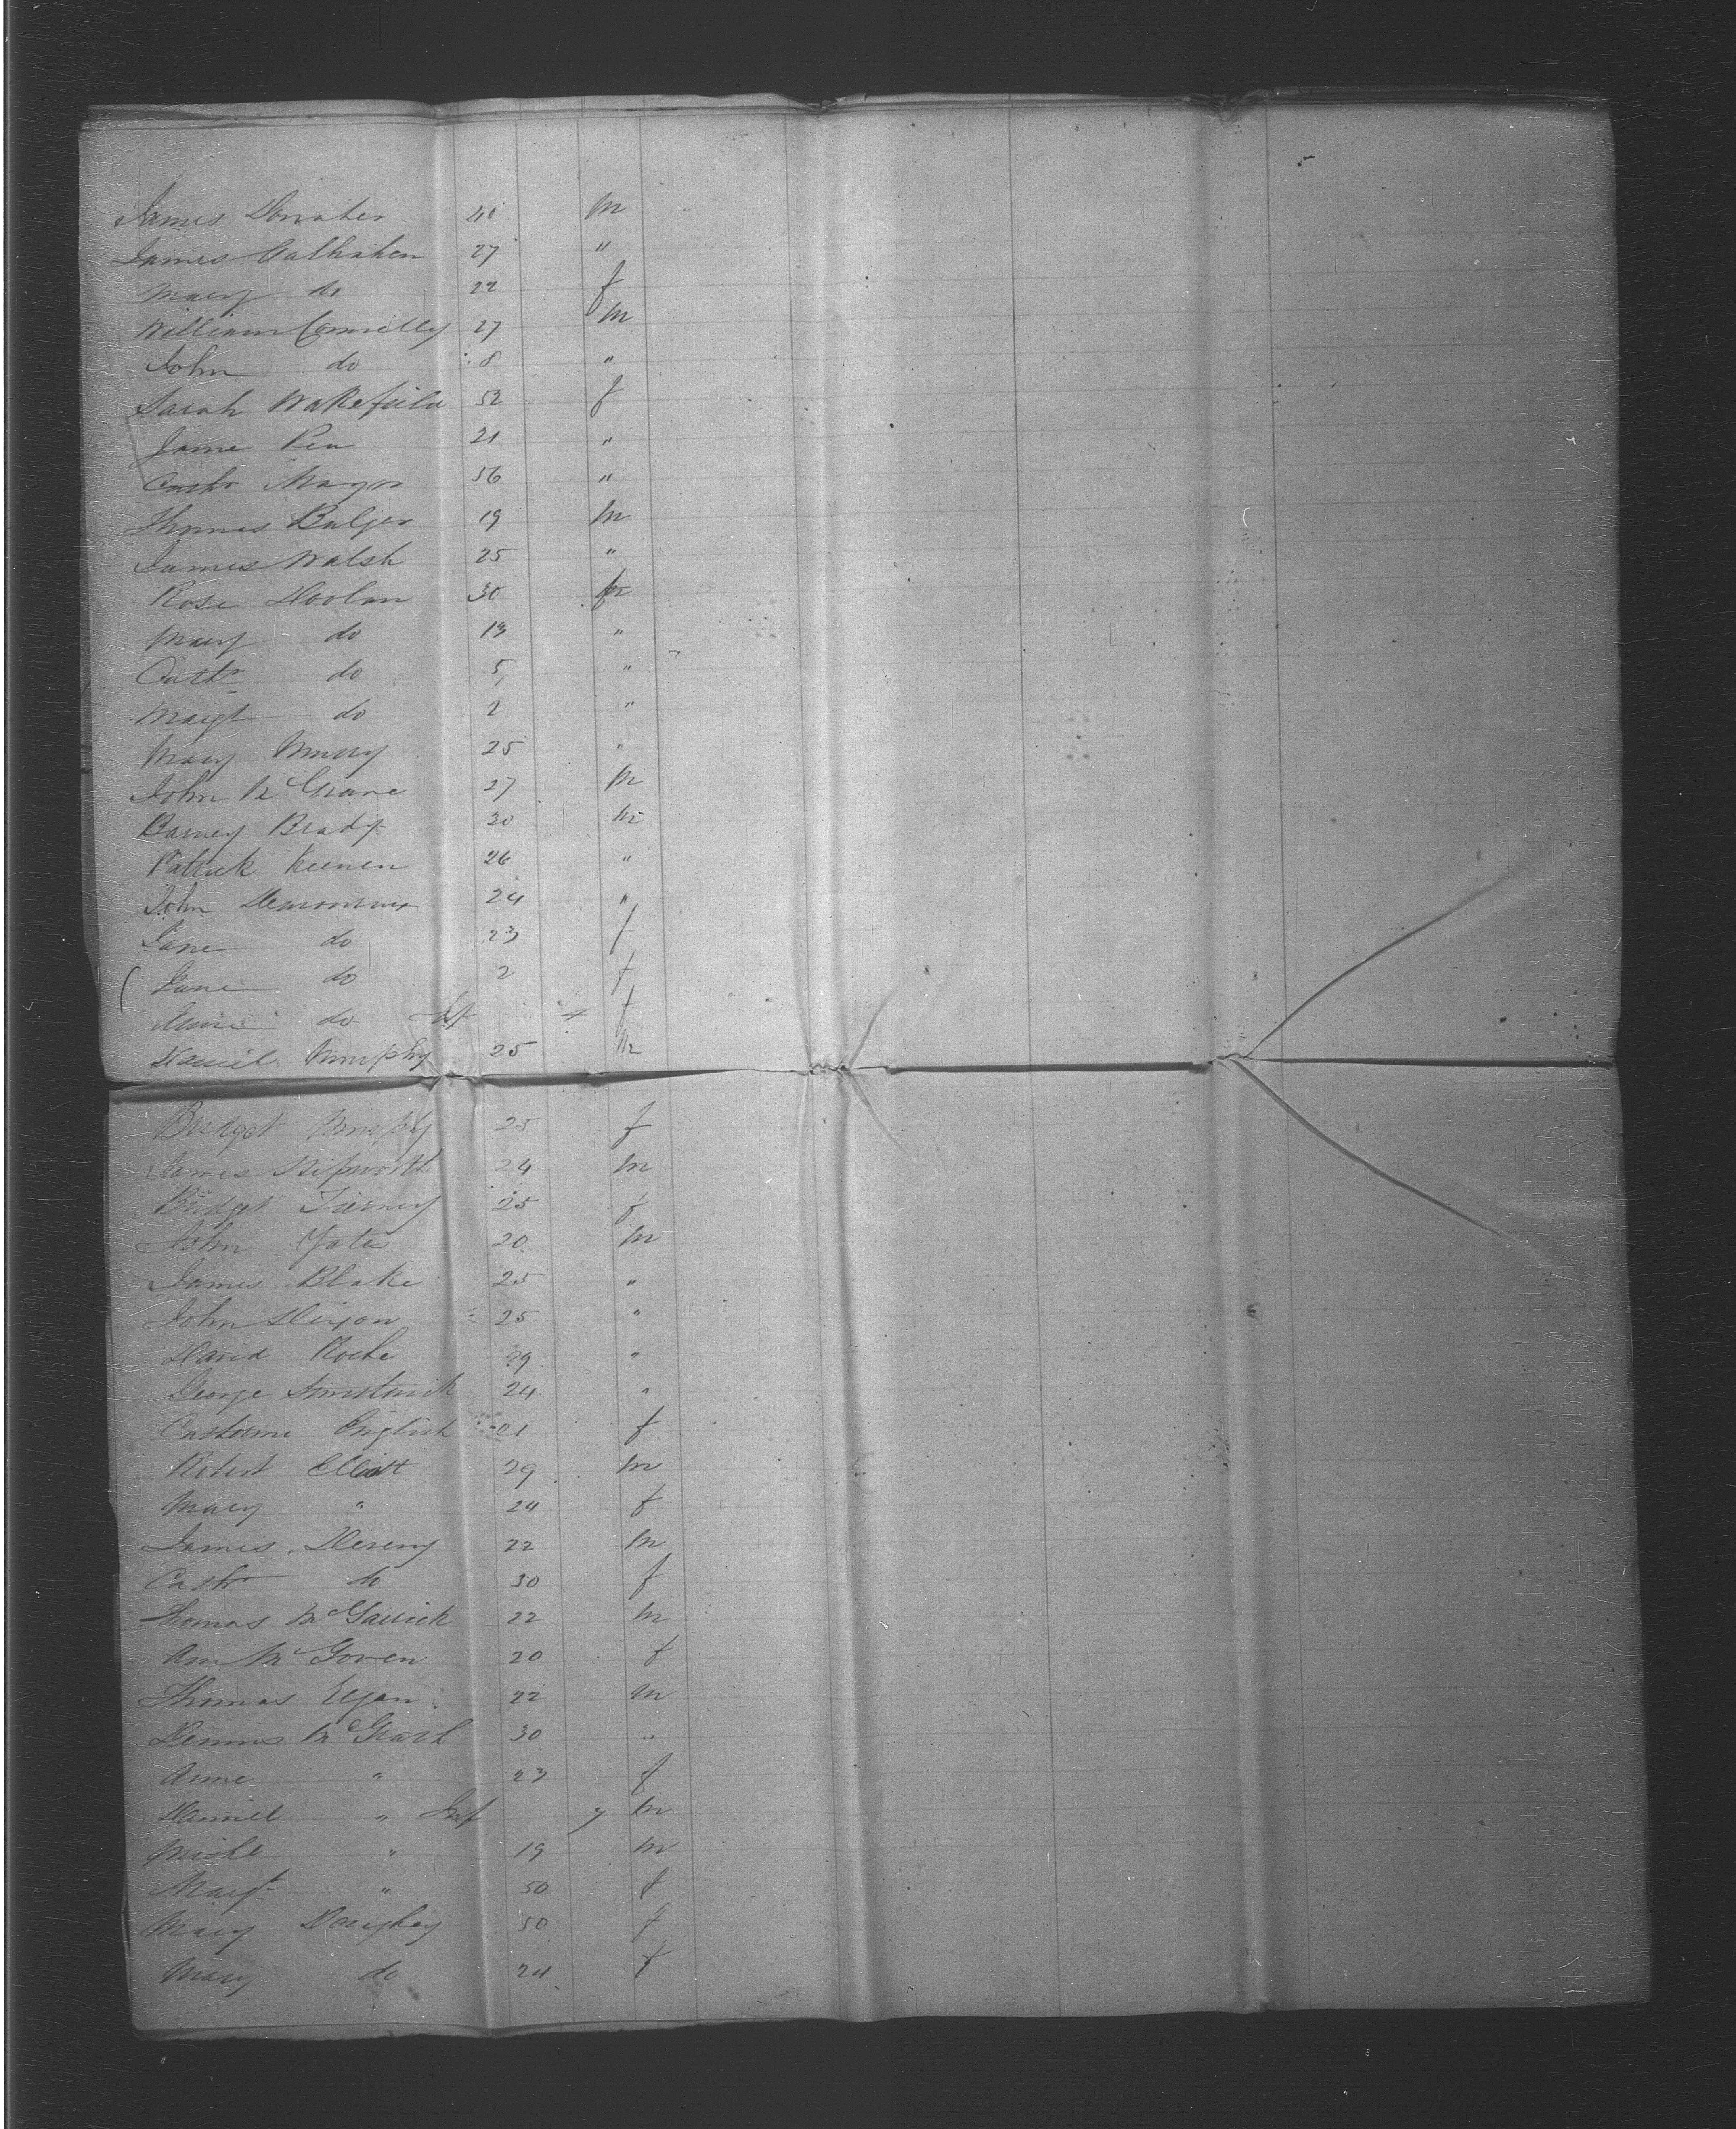 James Donaher 40 m
James Callhahen 27 "
Mary do 22 f
William Connelly 27 m
John do 8 "
Sarah Wakefield 52 f
Jane Rea 21 "
Cath 56 "
Thomas Bulger 19 m
James Walsh 25 "
Rose Doolan 30 f
Mary do 13 "
Cathr do 5 "
Margt do 2 "
Mary Murry 25 "
John McGrane 27 m
Barney Brady 30 m
Patrick Keenen 26 "
John 24 "
Jane do 23 f
Jane do 2 f
do Inf f
Daniel Murphy 25 m
Bridget Murphy 25 f
James Hepworth 24 m
Bridget Tierney 25 f
John Yates 20 m
James Blake 25 "
John Dixon 25 "
David Roche 29 "
George 24 "
English 21 f
Robert Elliott 29 m
Mary " 24 f
James Dereny 22 m
Cathr do 30 f
Thomas McGarrick 22 m
Ann McGoven 20 f
Thomas Egan 22 m
Dennis McGrath 30 "
Anne " 23 f
Daniel " Inf 7 m
Michl " 19 m
Margt " 50 f
Mary Doughey 50 f
Mary do 24 f